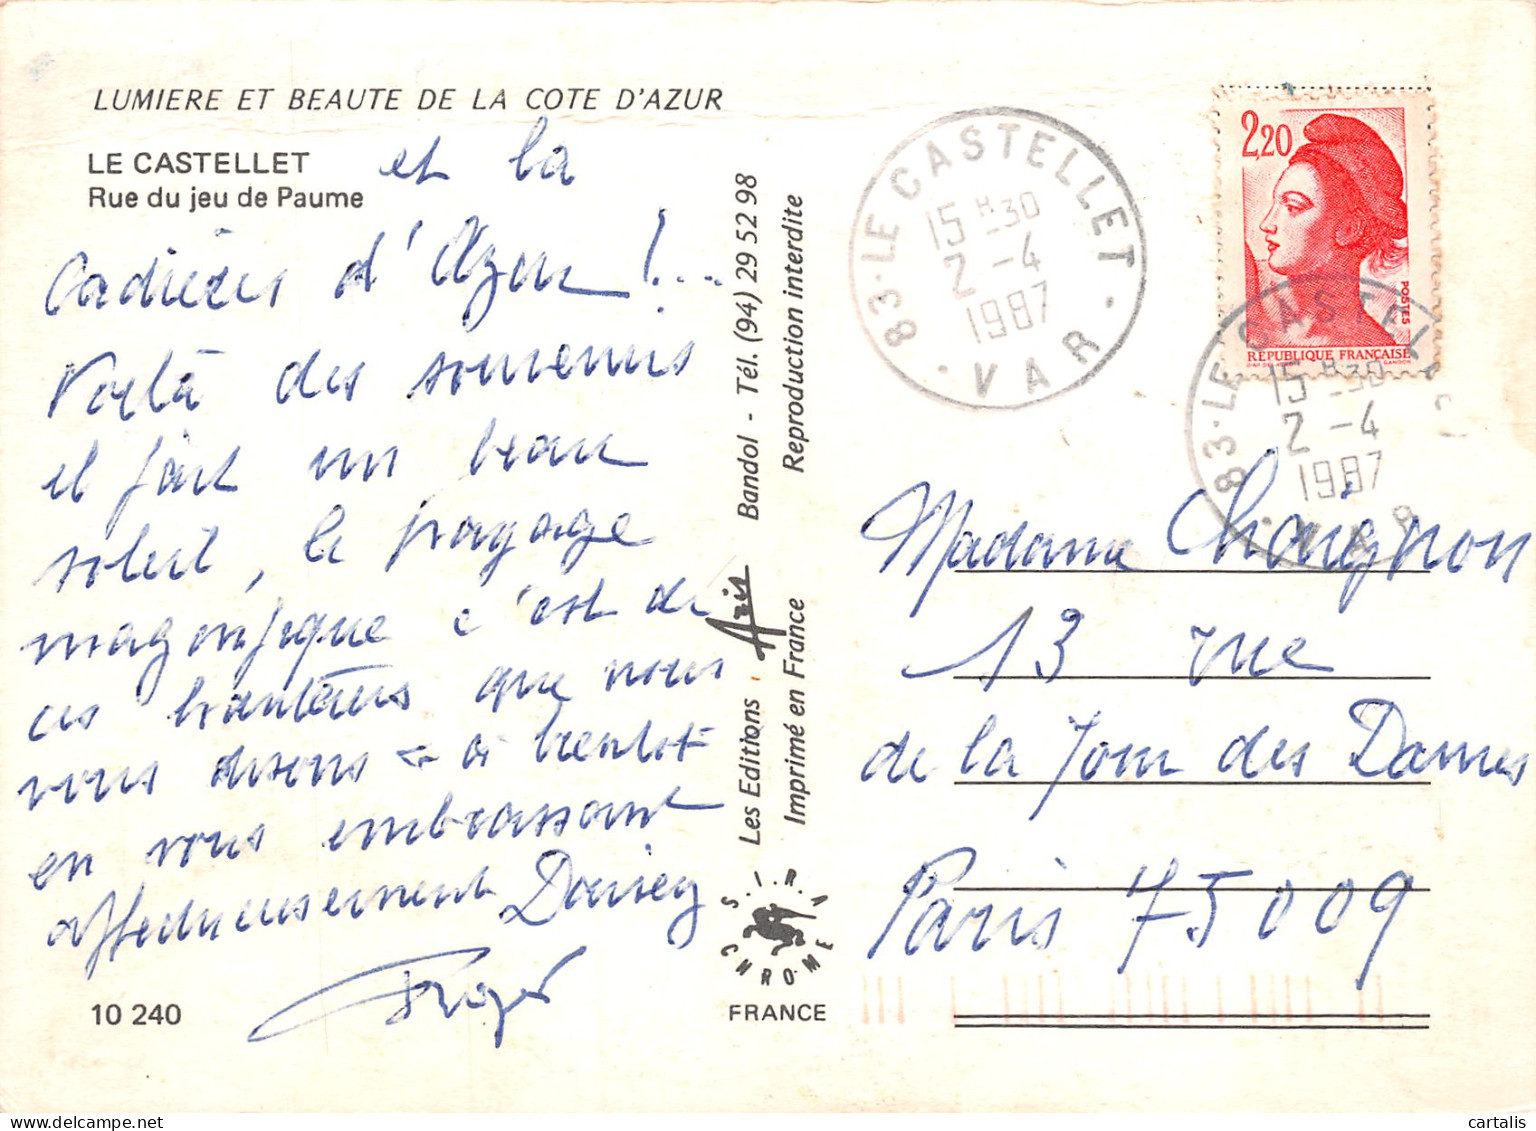 LUMIERE ET BEAUTE DE LA COTE D'AZUR
LE CASTELLET
Rue du jeu de Paume
et la
Cadière d'Azur !...
Voilà des souvenirs
il fait un beau
soleil, le paysage
magnifique c'est de
ces hauteurs que nous
vous disons - à bientôt
en vous embrassant
affectueusement
Roger
10 240
Les Editions Aris Bandol - Tél. (94) 29 52 98
Imprimé en France Reproduction interdite
S.I.R.A
CHROME
FRANCE
83-LE CASTELLET
15 H30
2 -4
1987
VAR
2,20
POSTES
RÉPUBLIQUE FRANÇAISE
GANDON
83-LE CASTEL
15 H30
2 -4
1987
VAR
Madame Chaignon
13 rue
de la Tour des Dames
Paris 75009
cartalis